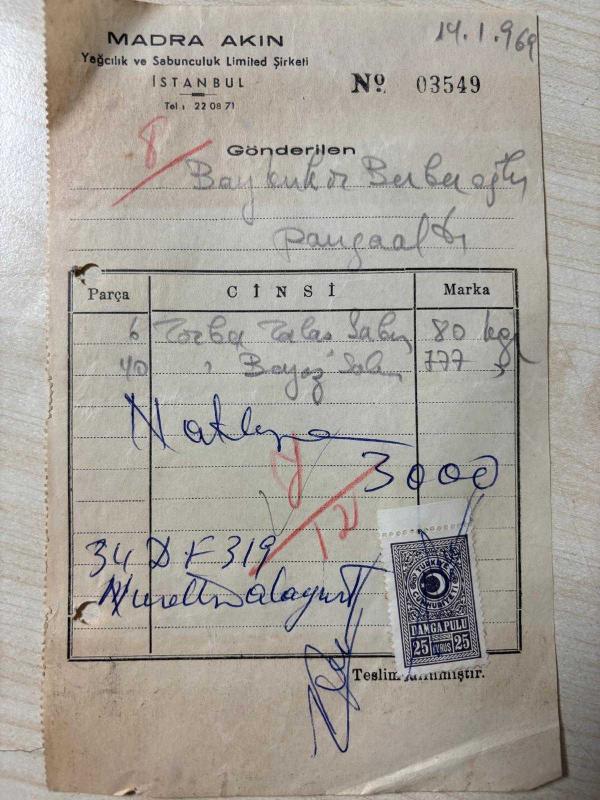 14.1.969
MADRA AKIN
Yağcılık ve Sabunculuk Limited Şirketi
İSTANBUL
Tel : 22 08 71
No 03549
8
Gönderilen
Bay Berberoğlu
Pangaaltı
Parça CİNSİ Marka
6 Torba Talaş Sabun 80 kg
40 " Beyaz Sabun 777 "
Nakliye
3000
12
34 D F 319
Nurettin Alayunt
TÜRKİYE
CUMHURİYETİ
DAMGA PULU
25 KURUŞ 25
Teslim alınmıştır.